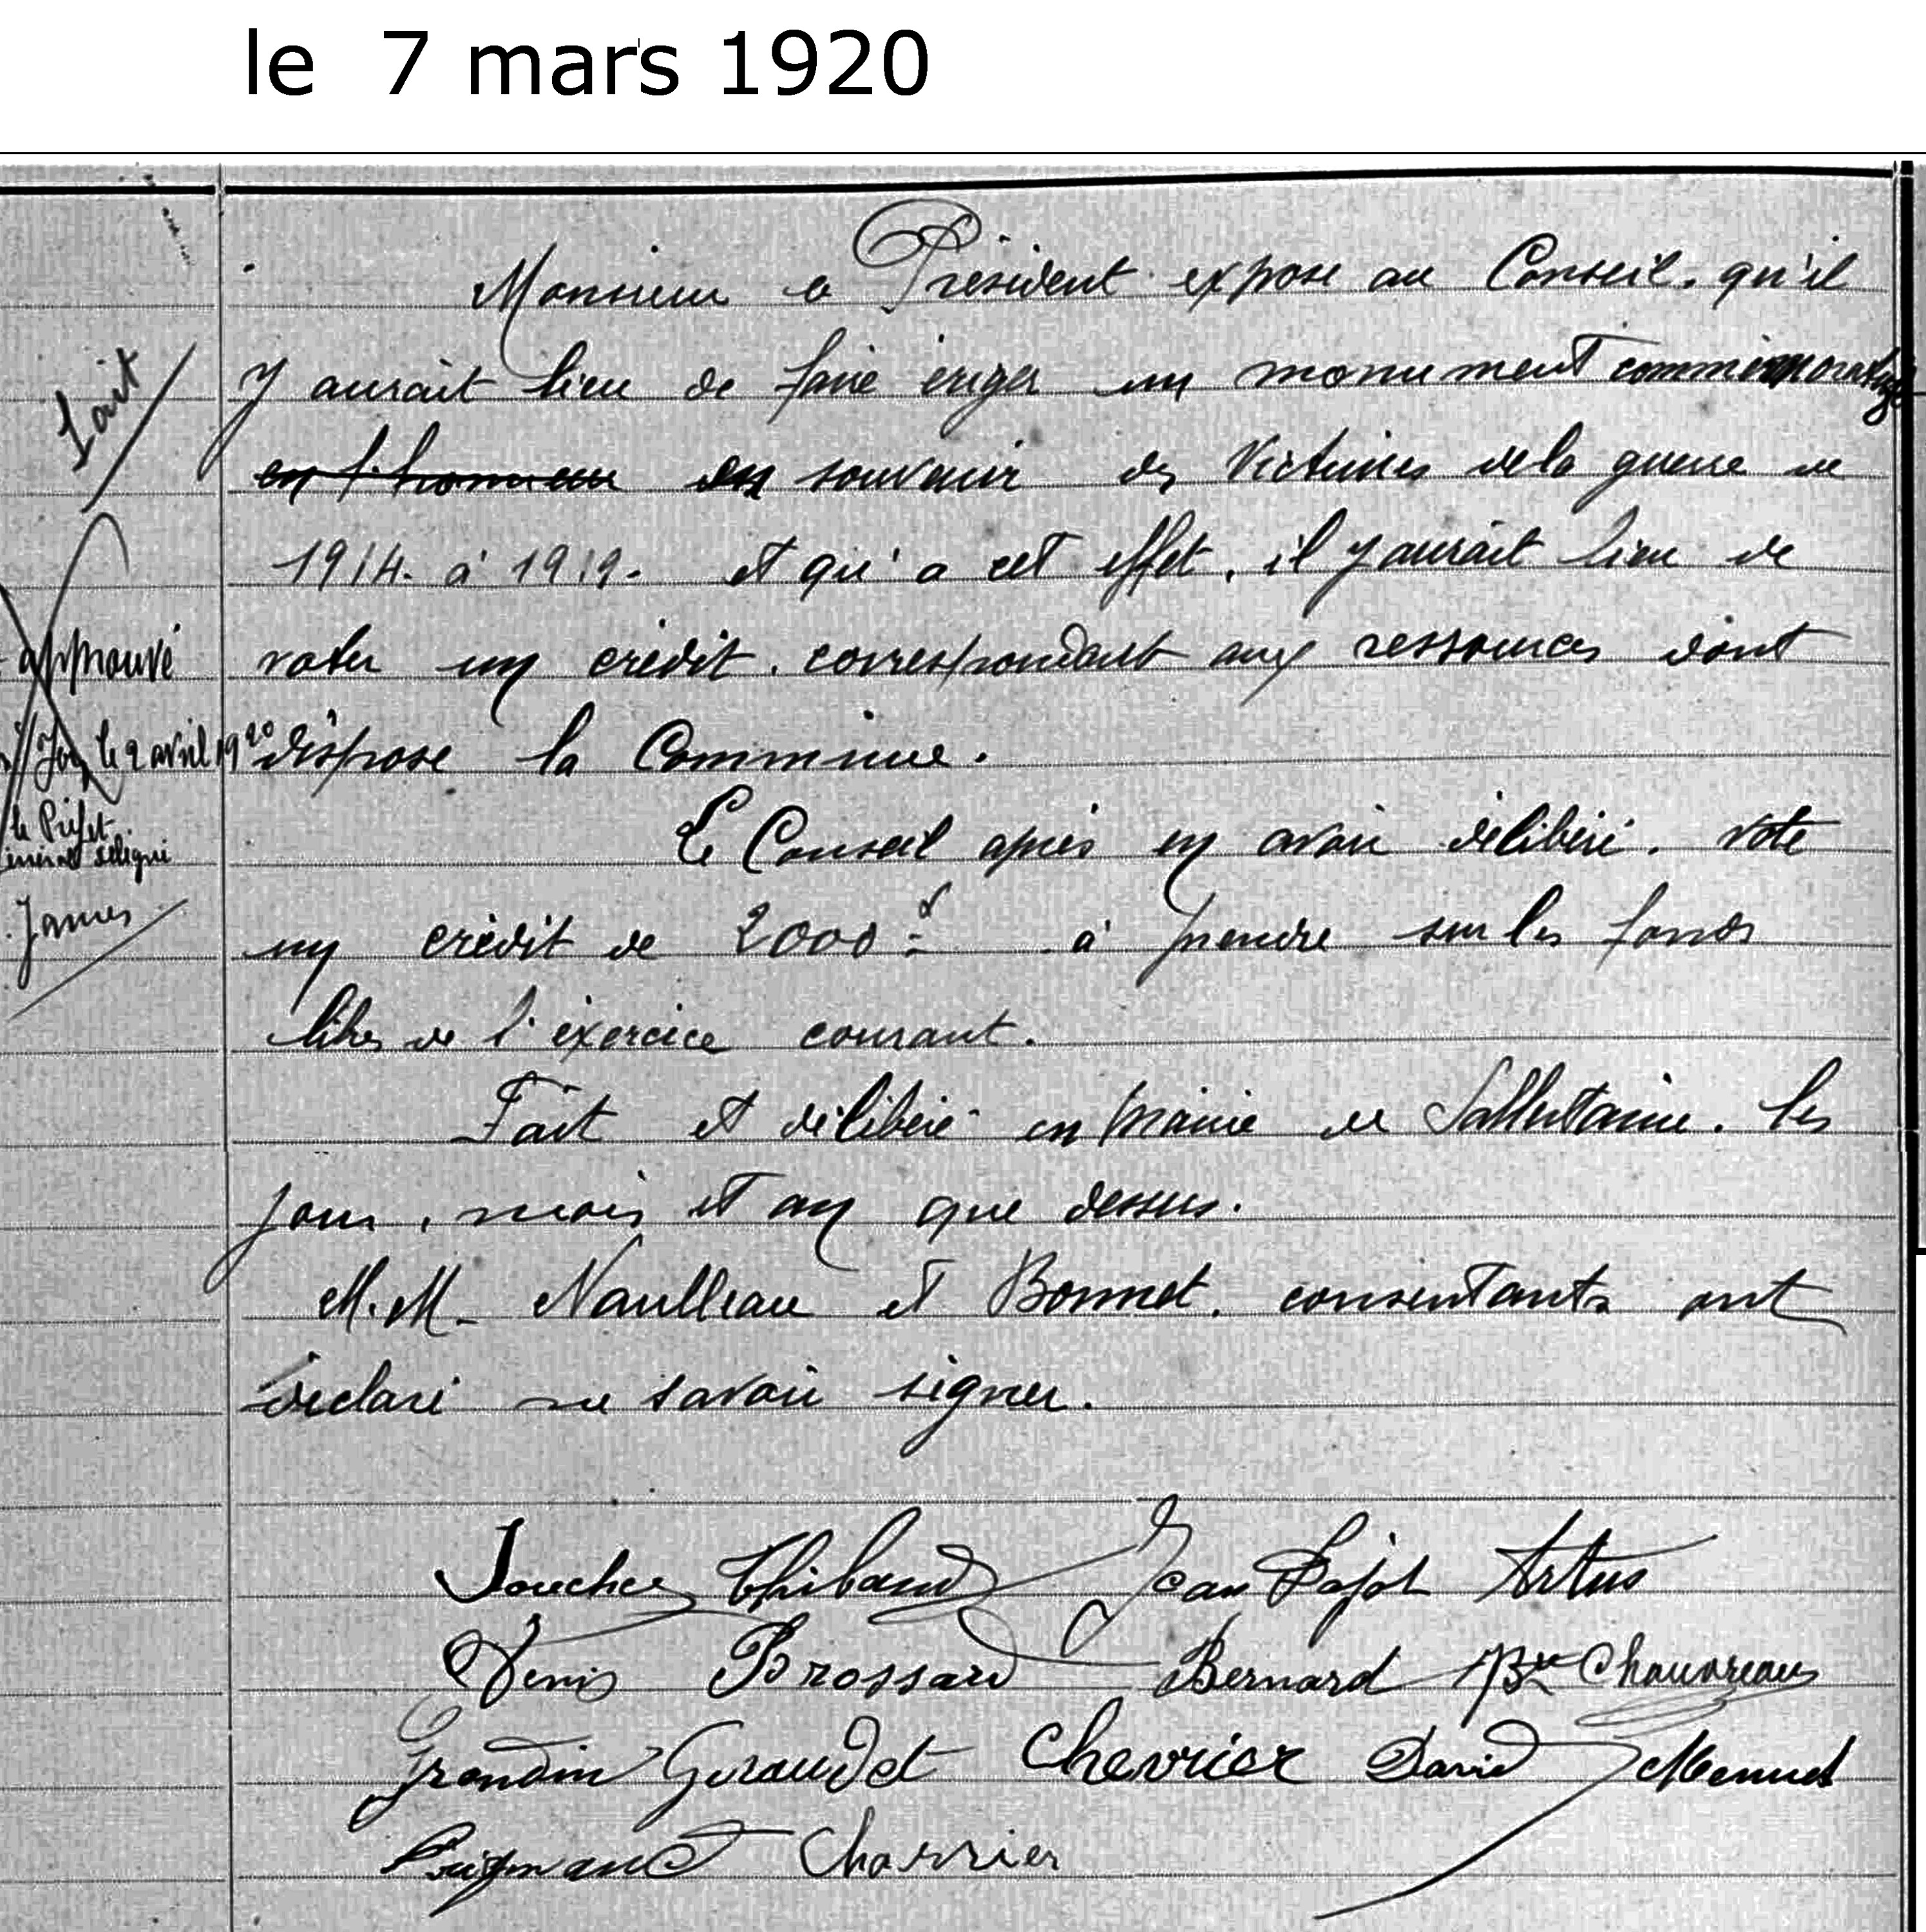 le 7 mars 1920
Monsieur le Président expose au Conseil. qu'il
y aurait lieu de faire ériger un monument commémoratif
en l'honneur en souvenir des Victimes de la guerre de
1914. à 1919. et qu'a cet effet, il y aurait lieu de
voter un crédit. correspondant aux ressources dont
dispose la Commune.
Le Conseil après en avoir délibéré. vote
un crédit de 2000 f à prendre sur les fonds
libres de l'exercice courant.
Fait et délibéré en Mairie de Sallertaine. les
jour, mois et an que dessus.
M.M. Naulleau et Bonnet. consentants ont
déclaré ne savoir signer.
Thibaud Jean Pajot Artus
Denis Brossard Bernard Bte Chauvreau
Grondin Giraudet Chevrier David Menuet
Charrier
fait
approuvé
le 2 avril 1920
le Préfet
James